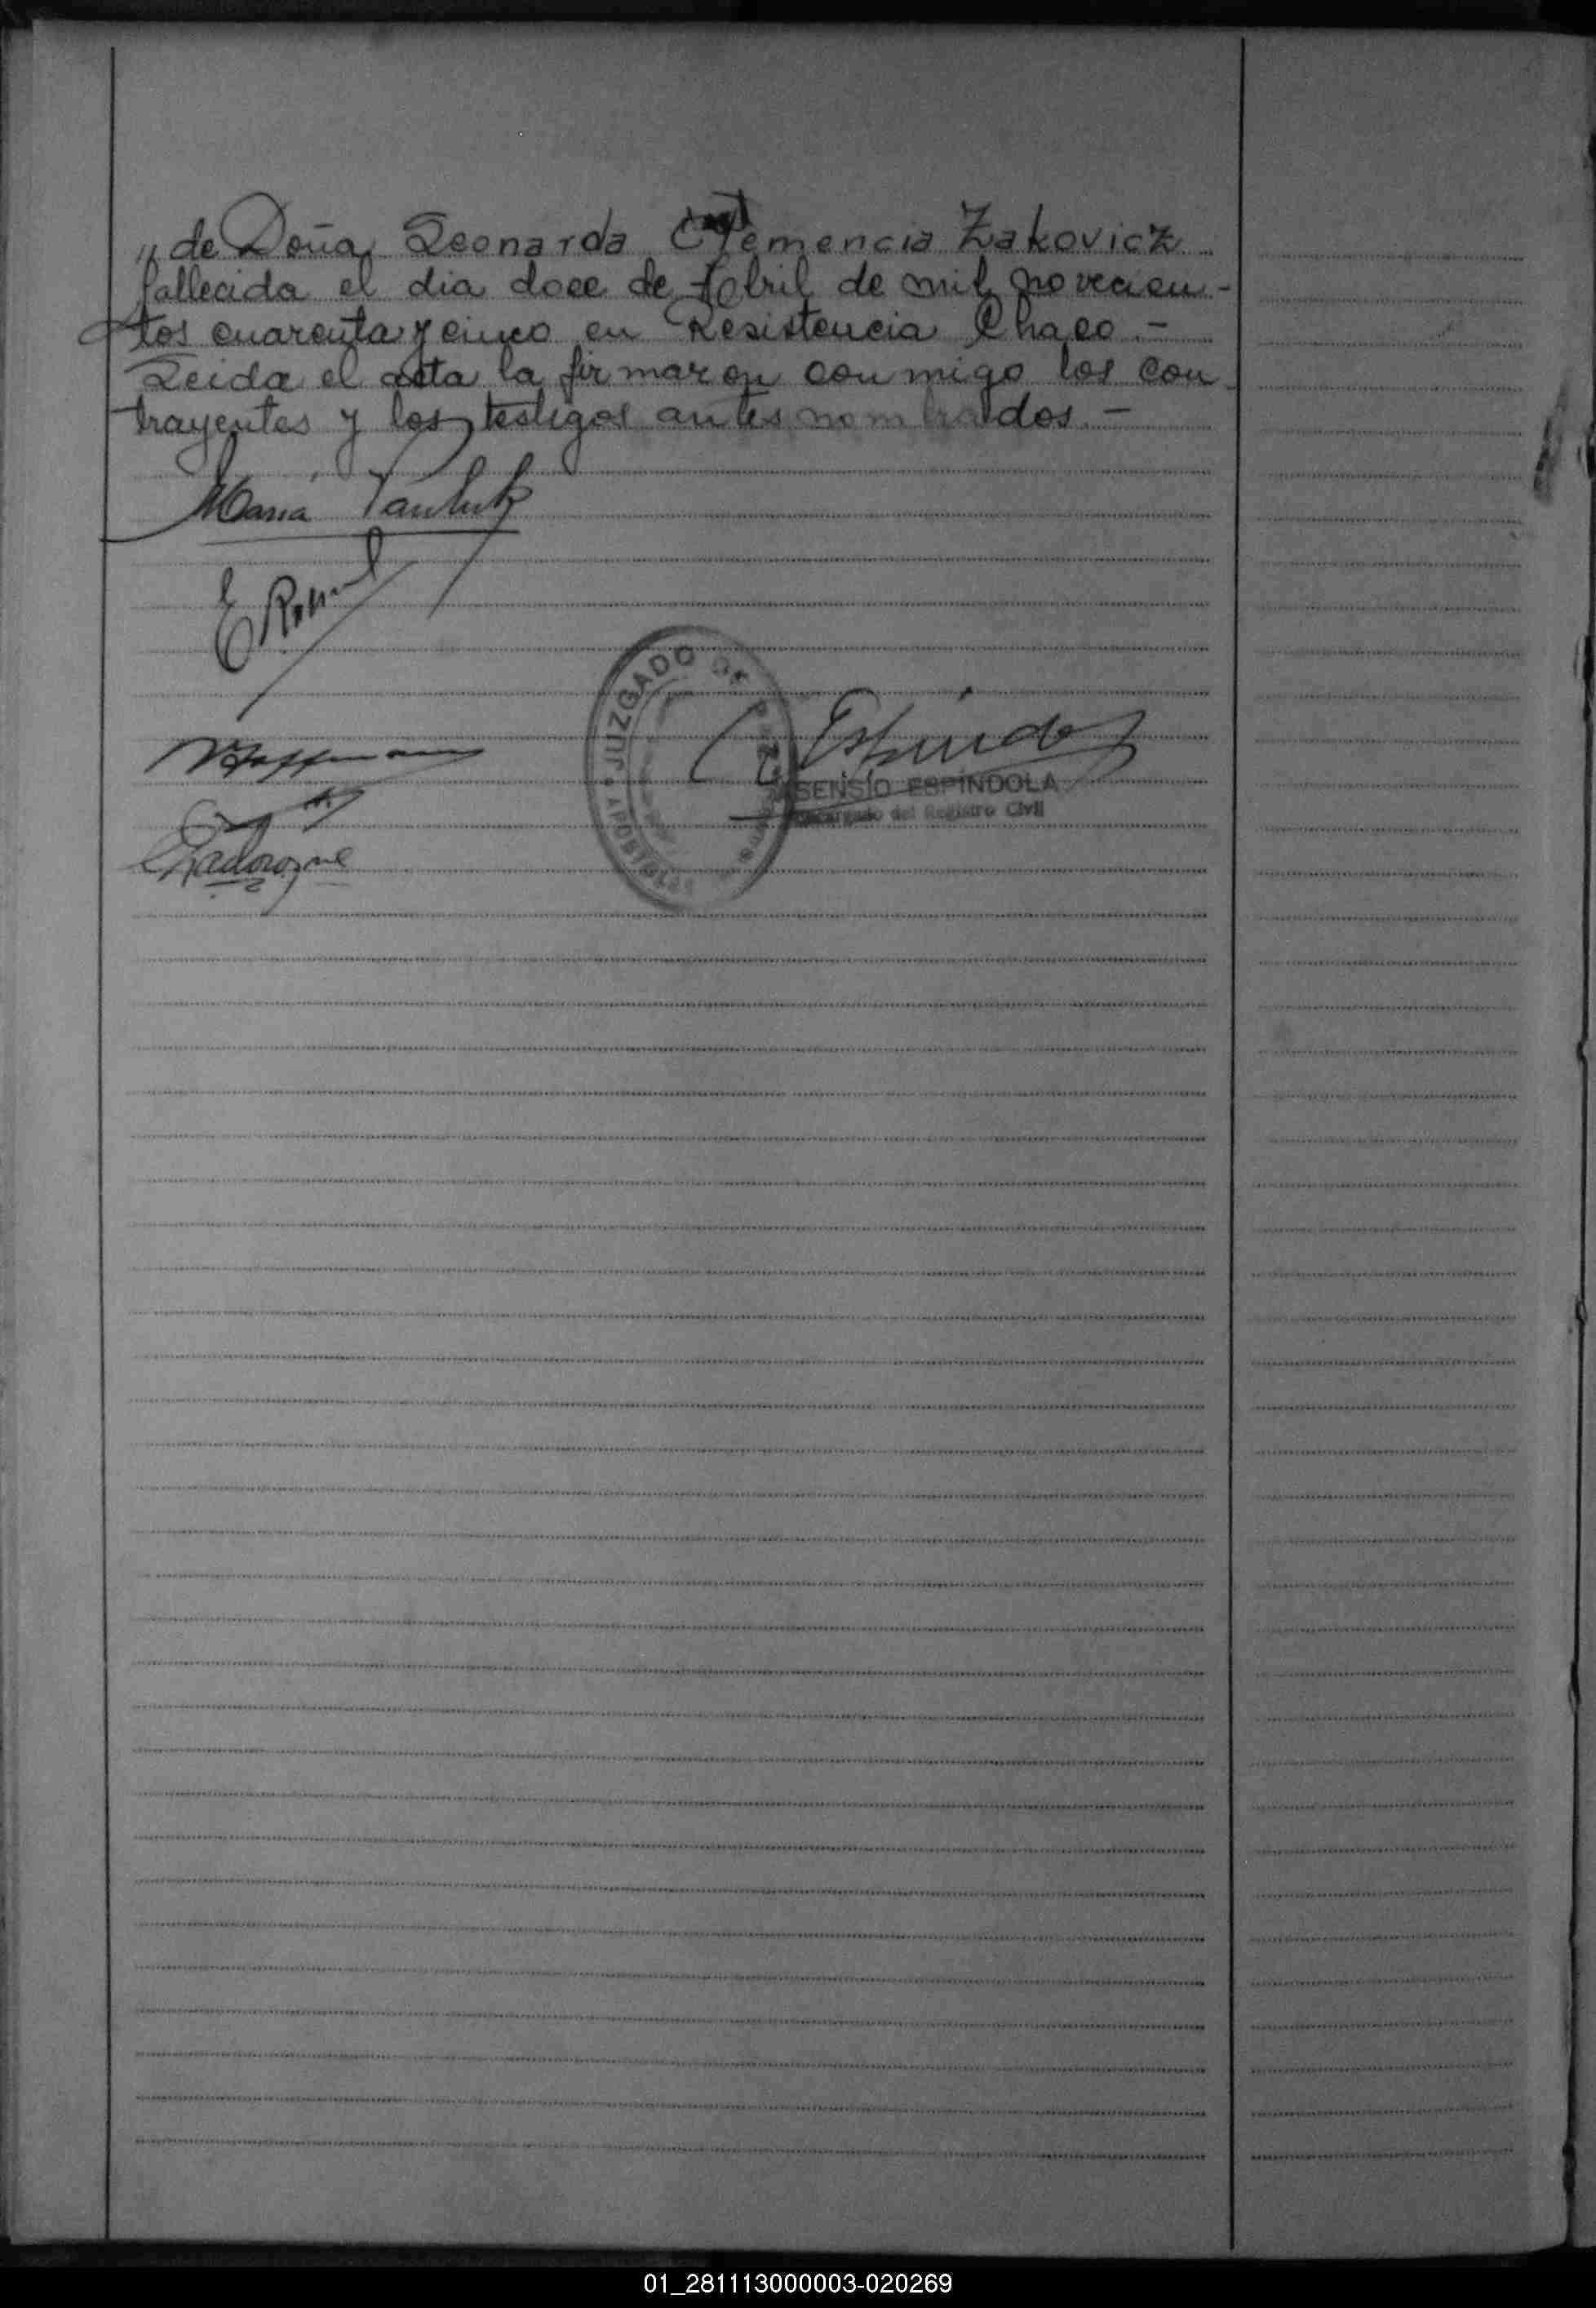 " de Doña Leonarda Clemencia Zakovicz
fallecida el dia doce de Abril de mil novecien-
tos cuarenta y cinco en Resistencia Chaco.-
Leida el acta la firmaron conmigo los con-
trayentes y los testigos antes nombrados.-
María Pauluk
E
JUZGADO DE PAZ
APOSTOLES
Espindola
ASENSIO ESPINDOLA
Encargado del Registro Civil
01_281113000003-020269